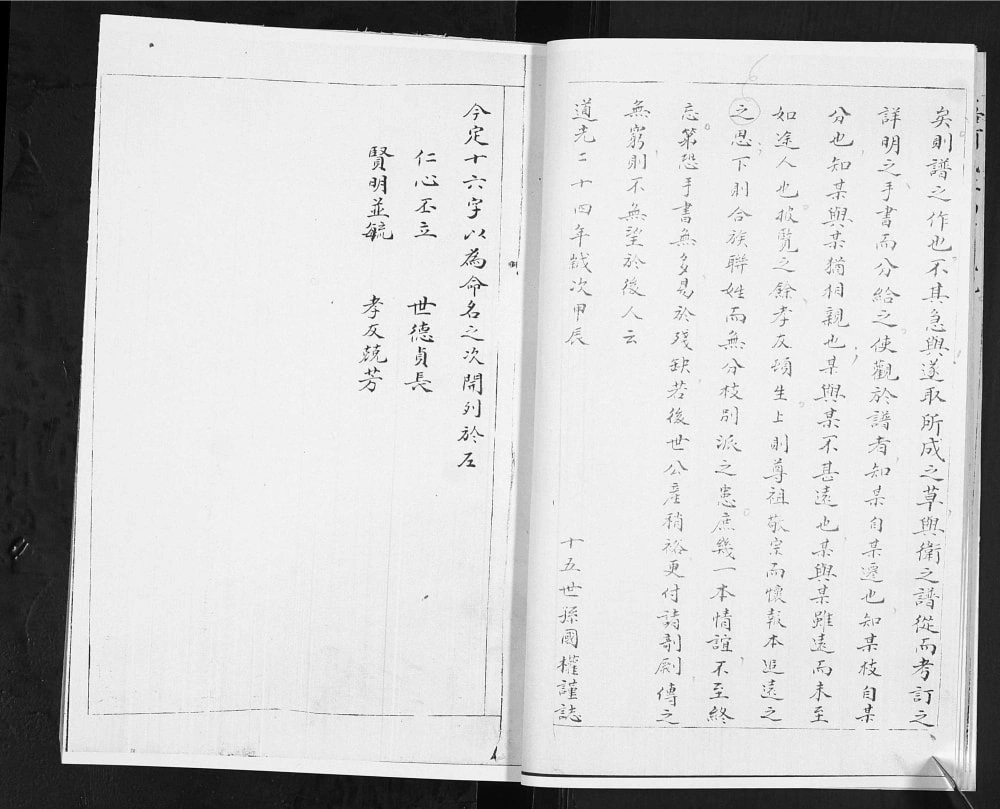 矣則譜之作也不其急與遂取所成之草與衛之譜從而考訂之
詳明之手書而分給之使觀於譜者知某自某遷也知某枝自某
分也知某與某猶相親也某與某不甚遠也某與某雖遠而未至
如途人也披覽之餘孝友頓生上則尊祖敬宗而懷報本追遠之
之恩下則合族聯姓而無分枝別派之患庶幾一本情誼不至終
忘第恐手書無多易於殘缺若後世公產稍裕更付請剞劂傳之
無窮則不無望於後人云
道光二十四年歲次甲辰
十五世孫國權謹誌
今定十六字以為命名之次開列於左
仁心丕立 世德貞長
賢明並毓 孝友兢芳